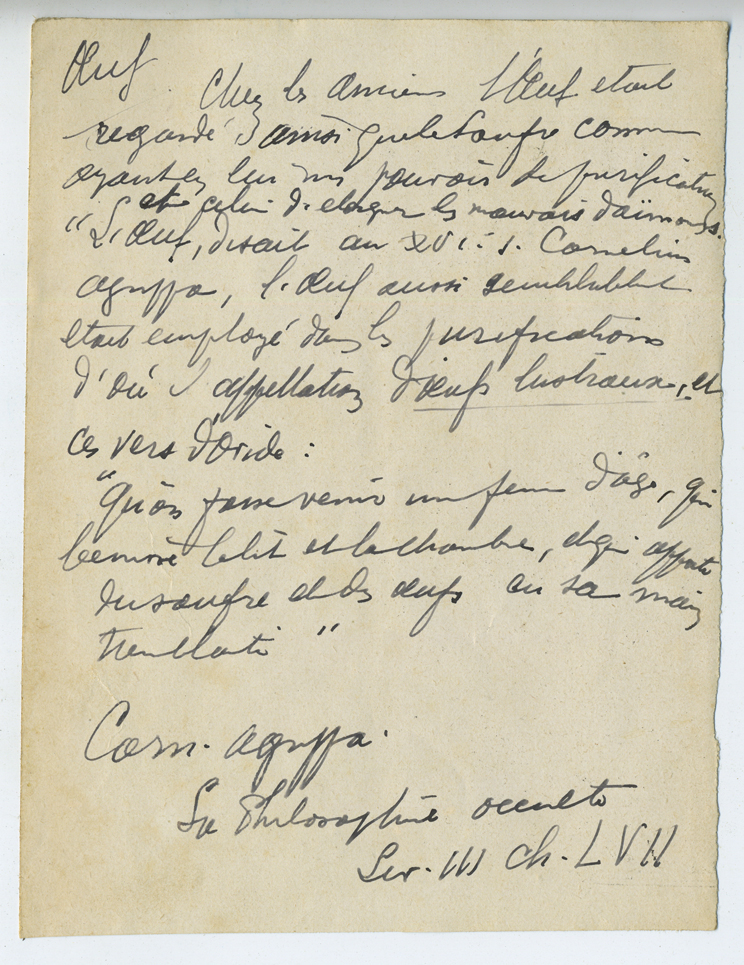 Œuf. Chez les anciens l'Œuf etait
regardé, ainsi que le Soufre comme
ayant en lui un pouvoir de purification
et celui d'eloigner les mauvais daïmons.
"L'Œuf, disait au XVI.e s. Cornelius
agrippa, l'œuf aussi semblablement
etait employé dans les purifications
d'où l'appellation d'œufs lustraux, et
ces vers d'Ovide :
"Qu'on fasse venir une femme d'âge, qui
le lit et la chambre, et qui apporte
du soufre et des œufs en sa main
tremblante "
Corn. agrippa.
La Philosophie occulte
Liv. III ch. LVII